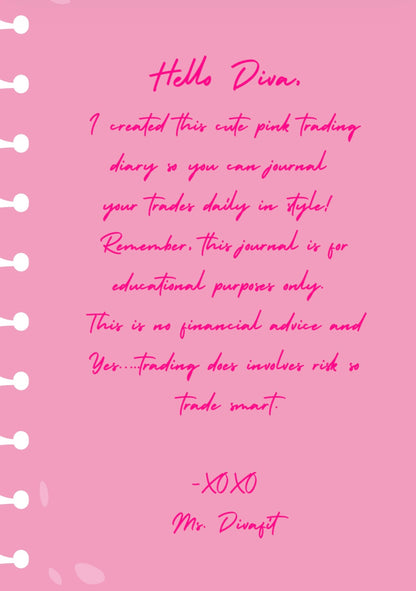 Hello Diva,
I created this cute pink trading
diary so you can journal
your trades daily in style!
Remember, this journal is for
educational purposes only.
This is no financial advice and
Yes.....trading does involves risk so
trade smart.
-XOXO
Ms. Divafit